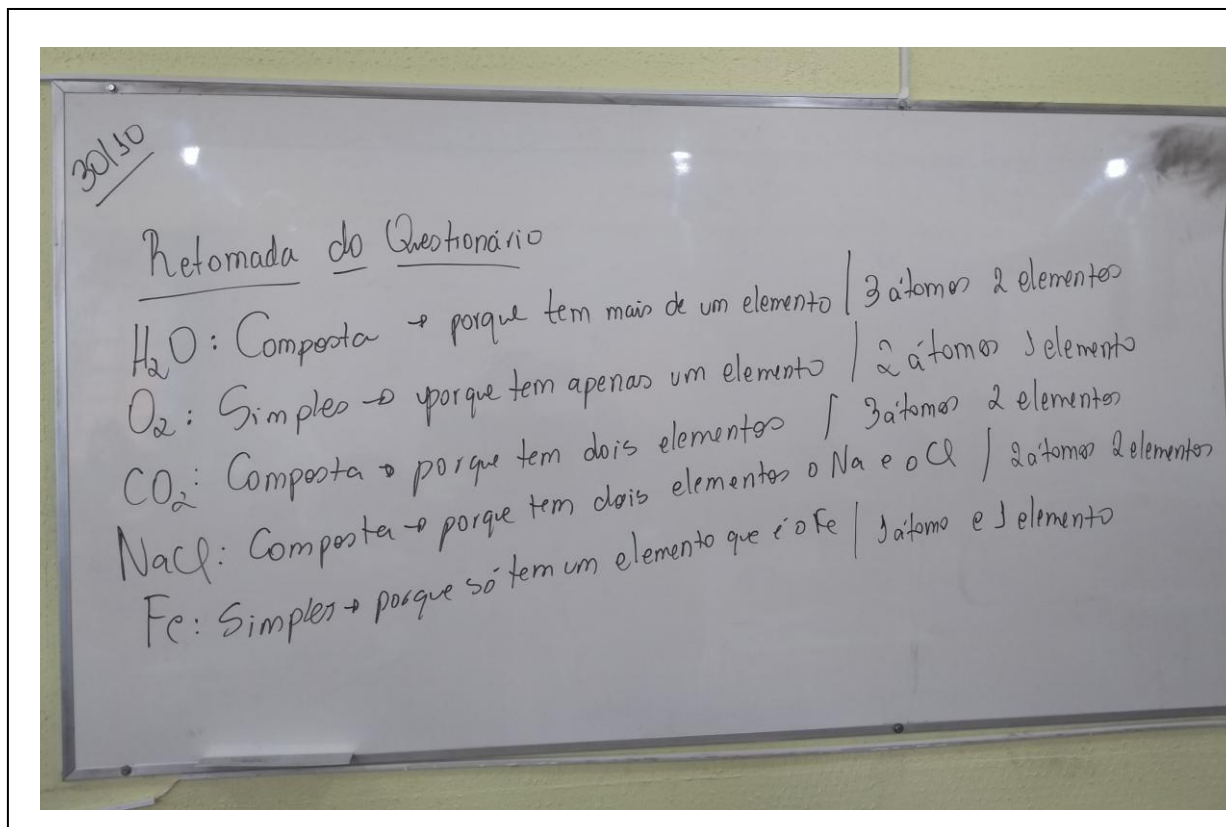 30/10
Retomada do Questionário
H₂O: Composta → porque tem mais de um elemento | 3 átomos 2 elementos
O₂: Simples → porque tem apenas um elemento | 2 átomos 1 elemento
CO₂: Composta → porque tem dois elementos | 3 átomos 2 elementos
NaCl: Composta → porque tem dois elementos o Na e o Cl | 2 átomos 2 elementos
Fe: Simples → porque só tem um elemento que é o Fe | 1 átomo e 1 elemento